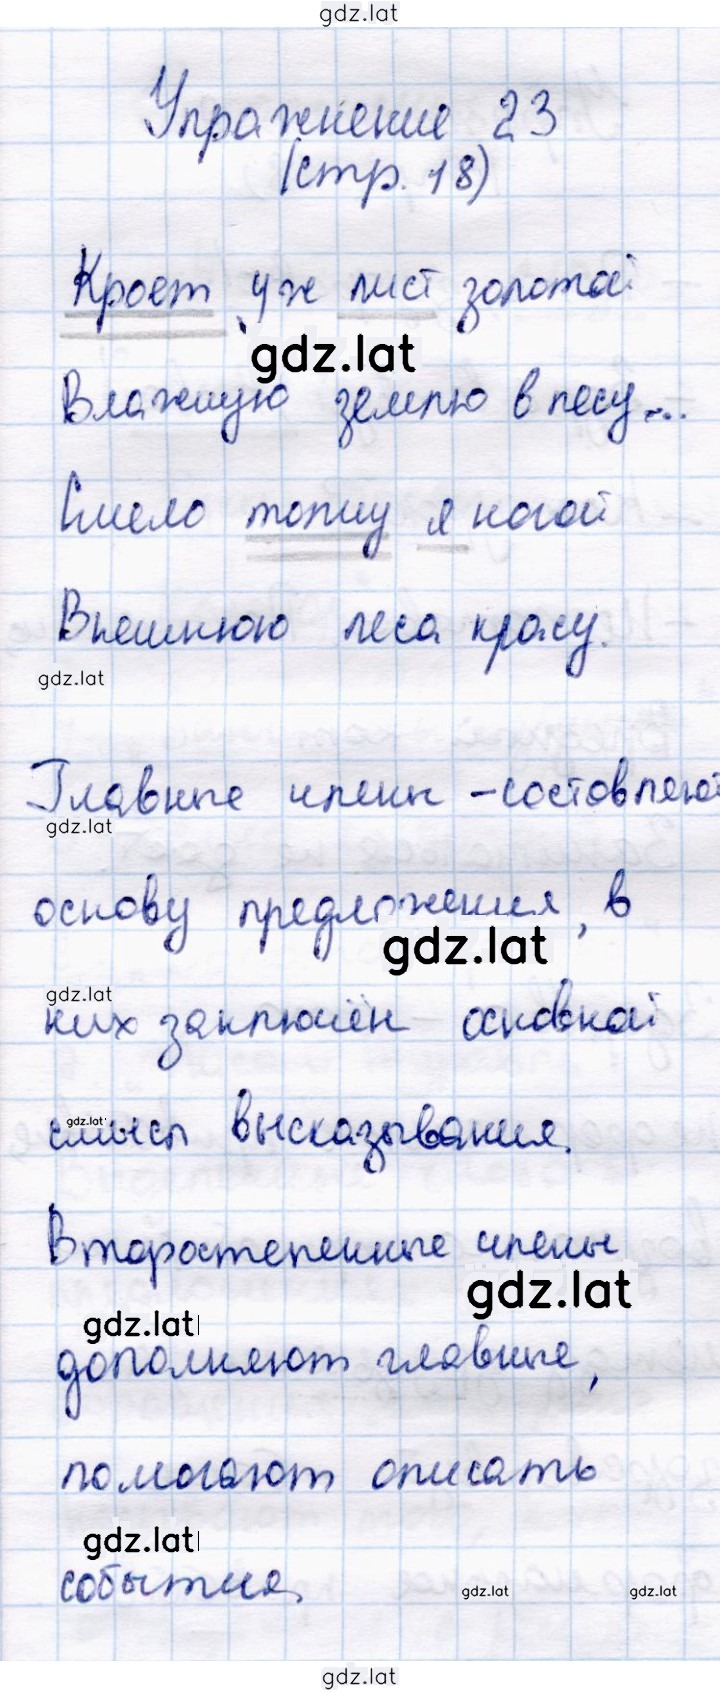 gdz.lat
Упражнение 23
(стр. 18)
Кроет уж лист золотой
gdz.lat
Влажную землю в лесу...
Смело топчу я ногой
Внешнюю леса красу.
gdz.lat
Главные члены - состовляют
gdz.lat
основу предложения, в
gdz.lat
gdz.lat
них заключён основной
gdz.lat
смысл высказывания.
Второстепенные члены
gdz.lat
gdz.lat
дополняют главные,
помогают описать
gdz.lat
события.
gdz.lat gdz.lat
gdz.lat